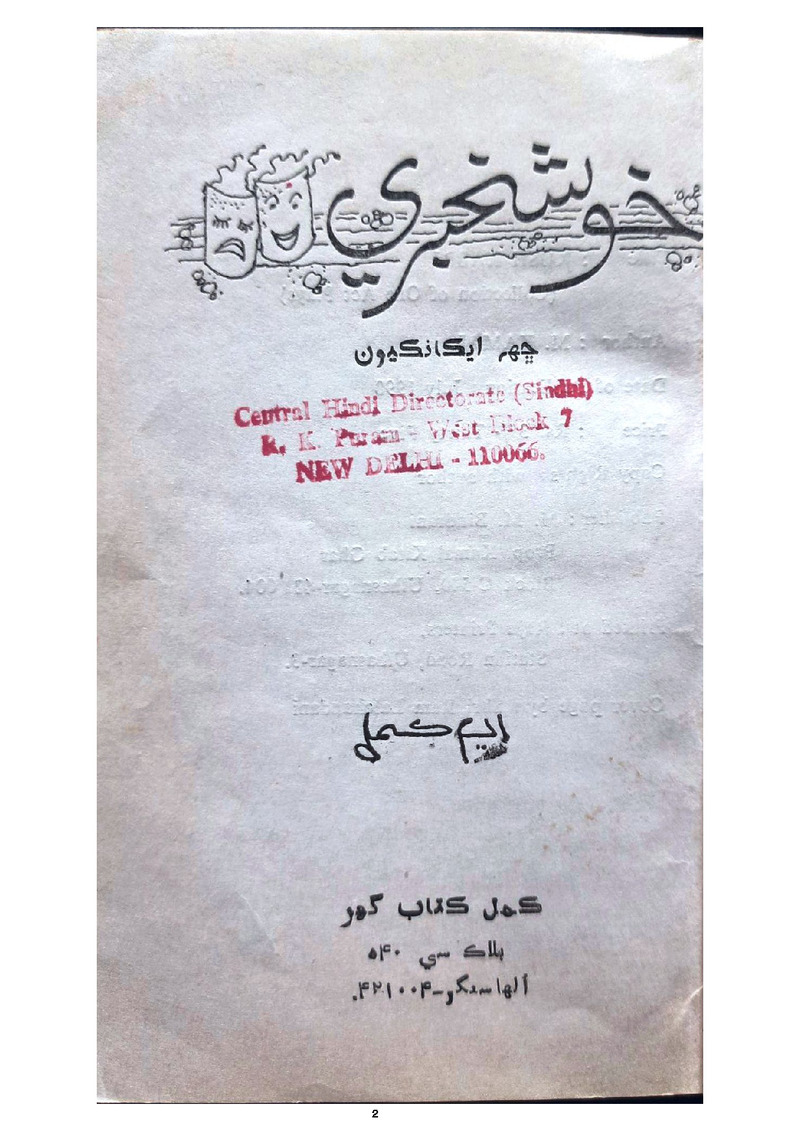 خوشخبري
ڇهر ايڪانڪيون
Central Hindi Directorate (Sindhi)
R. K. Puram - West Block 7
NEW DELHI - 110066.
ايم ڪمل
ڪمل ڪتاب گهر
بلاڪ سي ۵۴۰
الهاسنگر-۴۲۱۰۰۴.
2